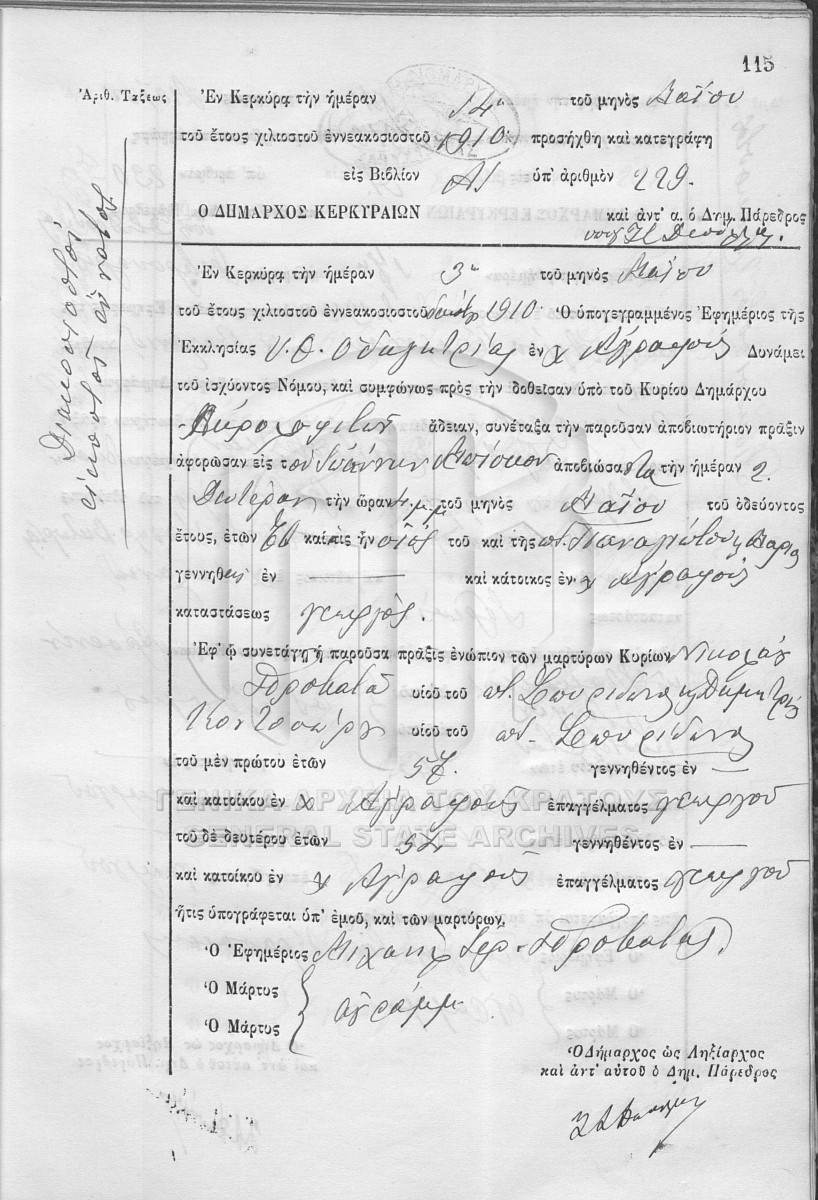 115
Ἀριθ. Τάξεως
Ἐν Κερκύρᾳ τὴν ἡμέραν 14η τοῦ μηνὸς Μαΐου
τοῦ ἔτους χιλιοστοῦ ἐννεακοσιοστοῦ 1910 προσήχθη καὶ κατεγράφη
εἰς Βιβλίον Α1 ὑπ' ἀριθμὸν 229.
Ο ΔΗΜΑΡΧΟΣ ΚΕΡΚΥΡΑΙΩΝ καὶ ἀντ' α. ὁ Δημ. Πάρεδρος
διακόσιοστοῦ
εἰκοστοῦ ἐννάτου
Ἐν Κερκύρᾳ τὴν ἡμέραν 3η τοῦ μηνὸς Μαΐου
τοῦ ἔτους χιλιοστοῦ ἐννεακοσιοστοῦ δεκάτου 1910 Ὁ ὑπογεγραμμένος Ἐφημέριος τῆς
Ἐκκλησίας Υ. Θ. Ὁδηγητρίας ἐν χ Ἀγραφοῖς Δυνάμει
τοῦ ἰσχύοντος Νόμου, καὶ συμφώνως πρὸς τὴν δοθεῖσαν ὑπὸ τοῦ Κυρίου Δημάρχου
ἄδειαν, συνέταξα τὴν παροῦσαν ἀποβιωτήριον πρᾶξιν
ἀφορῶσαν εἰς τὸν Ἰωάννην ἀποβιώσαντα τὴν ἡμέραν 2.
Δευτέραν τὴν ὥραν 4 μ.μ. τοῦ μηνὸς Μαΐου τοῦ ὁδεύοντος
ἔτους, ἐτῶν καὶ τὶς ἦν υἱὸς τοῦ καὶ τῆς ποτ. Παναγιώτου κ Μαρίας
γεννηθεὶς ἐν — καὶ κάτοικος ἐν χ Ἀγραφοῖς
καταστάσεως γεωργός.
Ἐφ' ᾧ συνετάγη ἡ παροῦσα πρᾶξις ἐνώπιον τῶν μαρτύρων Κυρίων Νικολάου
Προβατᾶ υἱοῦ τοῦ ποτ. Σπυρίδωνος κ Δημητρίου
υἱοῦ τοῦ ποτ. Σπυρίδωνος
τοῦ μὲν πρώτου ἐτῶν 57. γεννηθέντος ἐν —
καὶ κατοίκου ἐν χ Ἀγραφοῖς ἐπαγγέλματος γεωργοῦ
ΓΕΝΙΚΑ ΑΡΧΕΙΑ ΤΟΥ ΚΡΑΤΟΥΣ
GENERAL STATE ARCHIVES
τοῦ δὲ δευτέρου ἐτῶν 52 γεννηθέντος ἐν —
καὶ κατοίκου ἐν χ Ἀγραφοῖς ἐπαγγέλματος γεωργοῦ
ἥτις ὑπογράφεται ὑπ' ἐμοῦ, καὶ τῶν μαρτύρων.
Ὁ Ἐφημέριος Μιχαὴλ Ἱερ. Προβατᾶς
Ὁ Μάρτυς
ἀγράμμ.
Ὁ Μάρτυς
Ὁ Δήμαρχος ὡς Ληξίαρχος
καὶ ἀντ' αὐτοῦ ὁ Δημ. Πάρεδρος